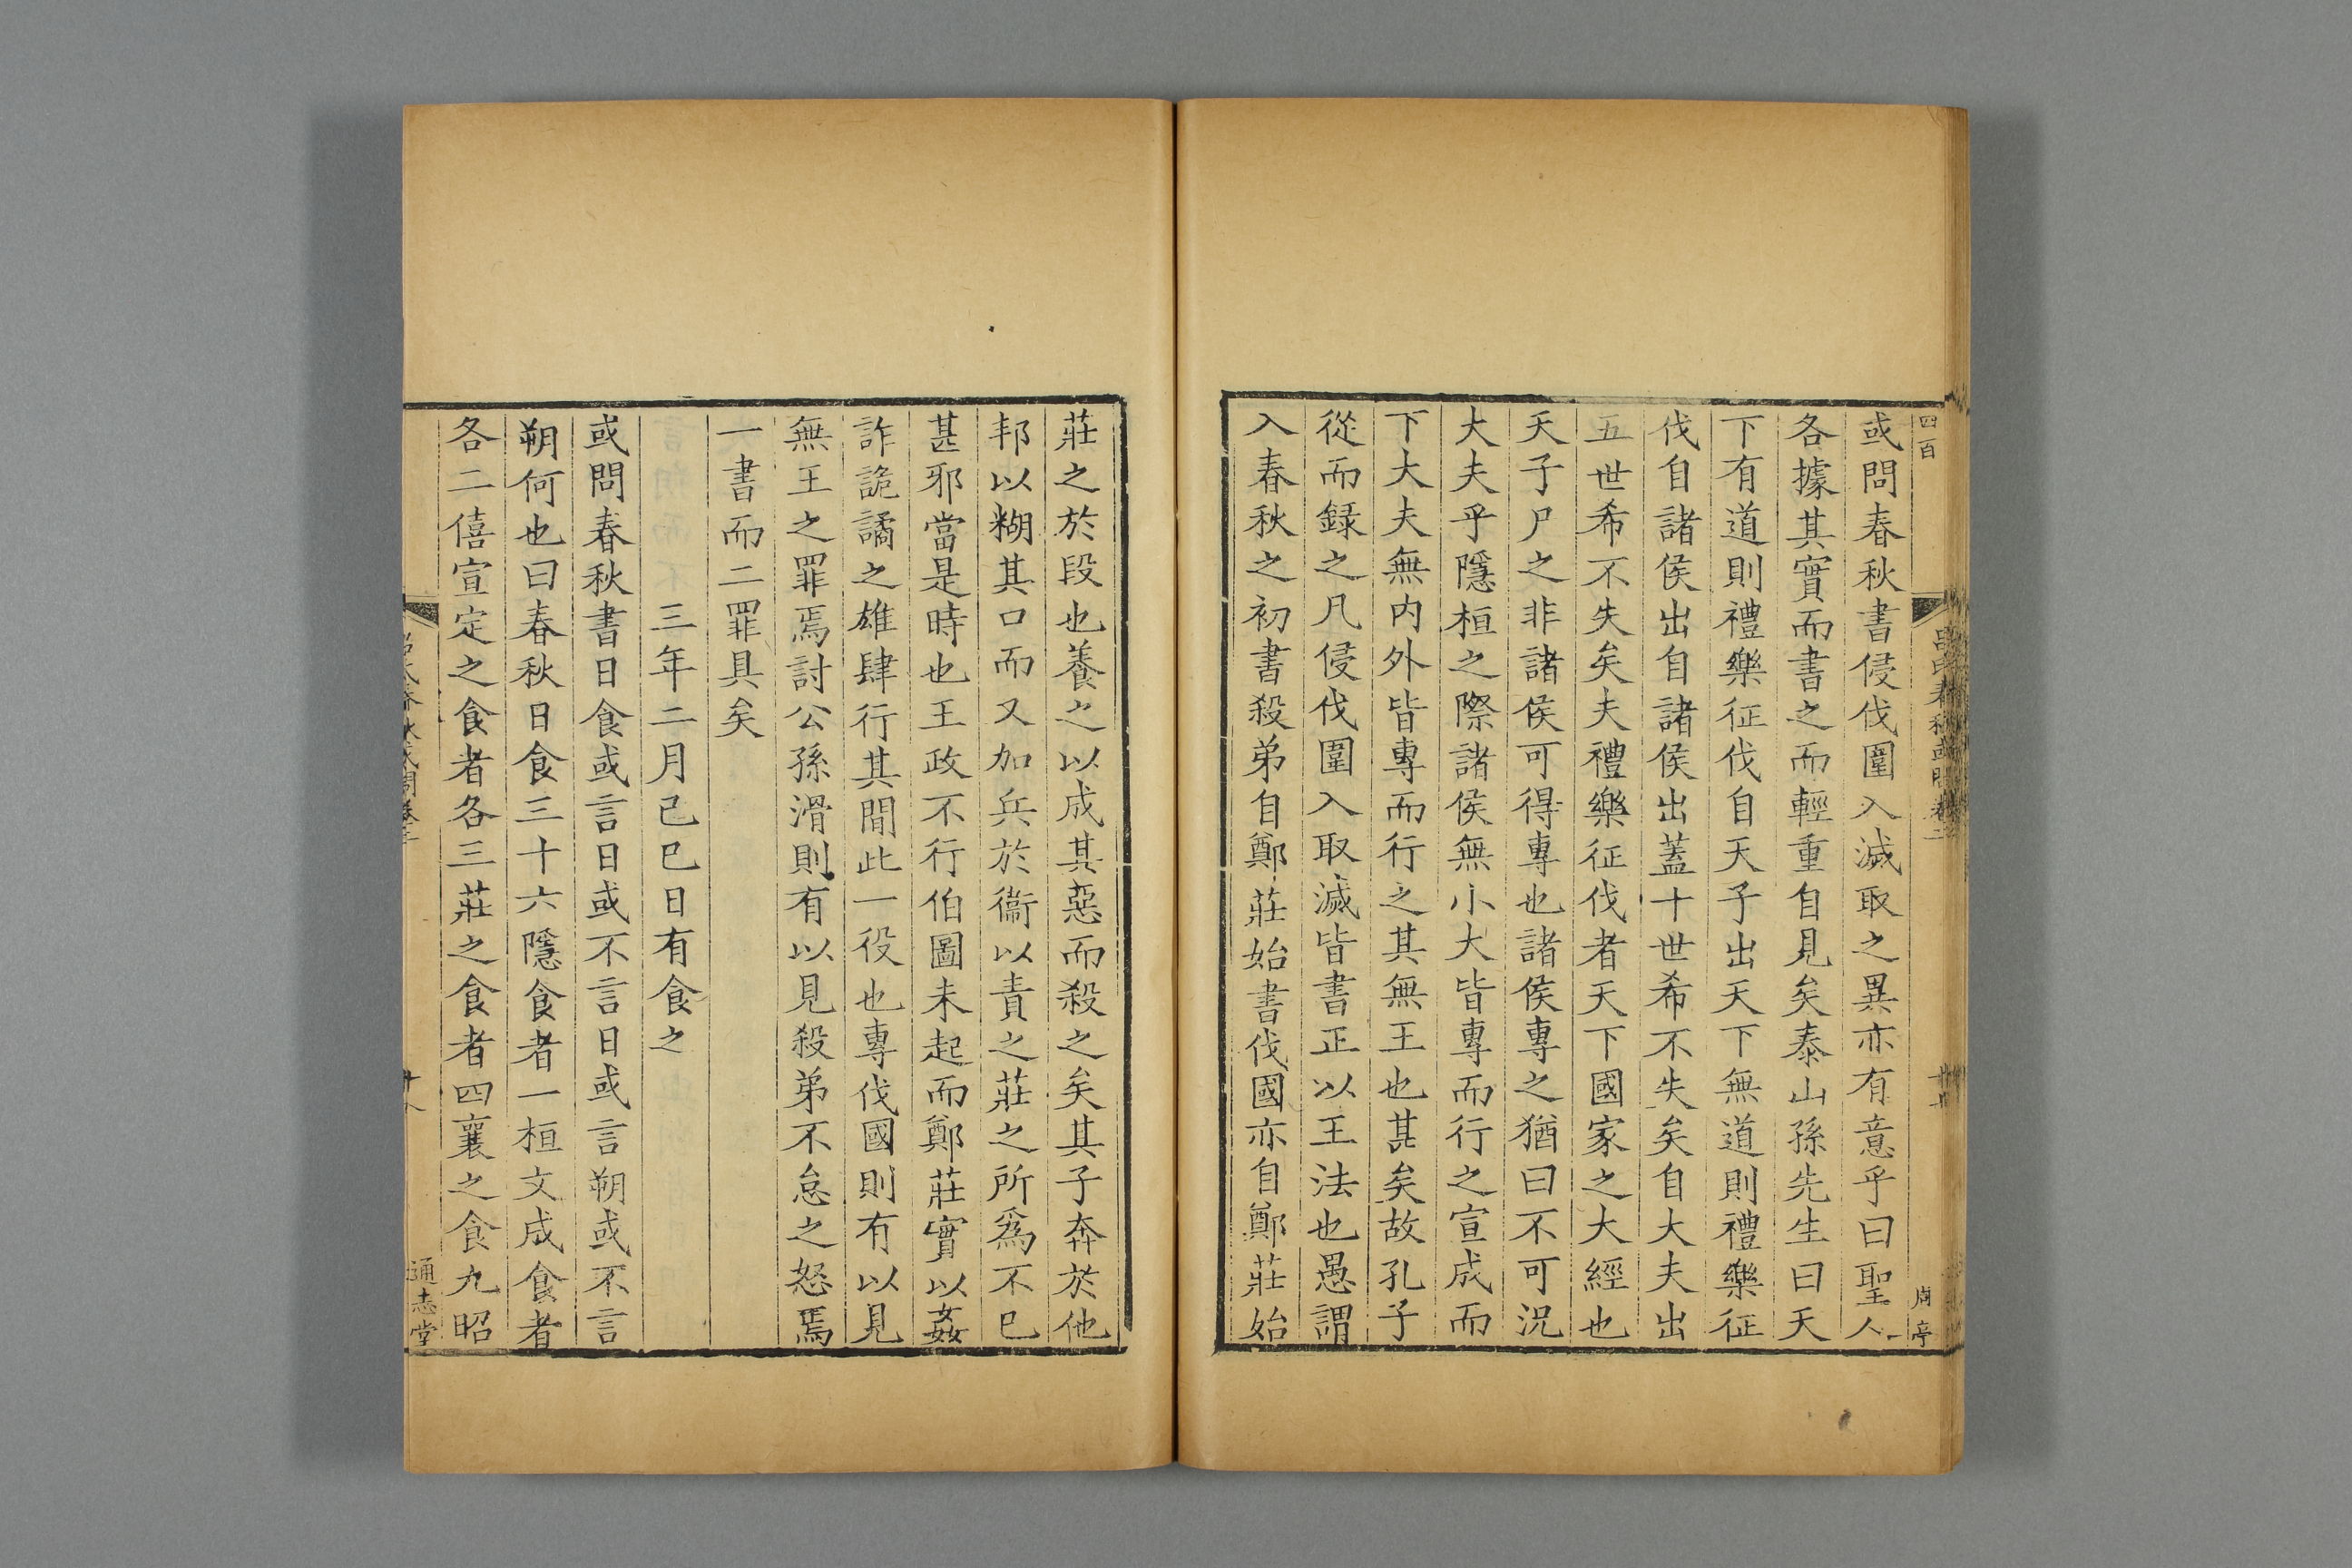 四百
周亭
或問春秋書侵伐圍入滅取之異亦有意乎曰聖人
各據其實而書之而輕重自見矣泰山孫先生曰天
下有道則禮樂征伐自天子出天下無道則禮樂征
伐自諸侯出自諸侯出蓋十世希不失矣自大夫出
五世希不失矣夫禮樂征伐者天下國家之大經也
天子尸之非諸侯可得專也諸侯專之猶曰不可況
大夫乎隱桓之際諸侯無小大皆專而行之宣成而
下大夫無內外皆專而行之其無王也甚矣故孔子
從而録之凡侵伐圍入取滅皆書正以王法也愚謂
入春秋之初書殺弟自鄭莊始書伐國亦自鄭莊始
莊之於段也養之以成其惡而殺之矣其子奔於他
邦以糊其口而又加兵於衞以責之莊之所爲不已
甚邪當是時也王政不行伯圖未起而鄭莊實以姦
詐詭譎之雄肆行其間此一役也專伐國則有以見
無王之罪焉討公孫滑則有以見殺弟不怠之怒焉
一書而二罪具矣
三年二月己巳日有食之
或問春秋書日食或言日或不言日或言朔或不言
朔何也曰春秋日食三十六隱食者一桓文成食者
各二僖宣定之食者各三莊之食者四襄之食九昭
通志堂